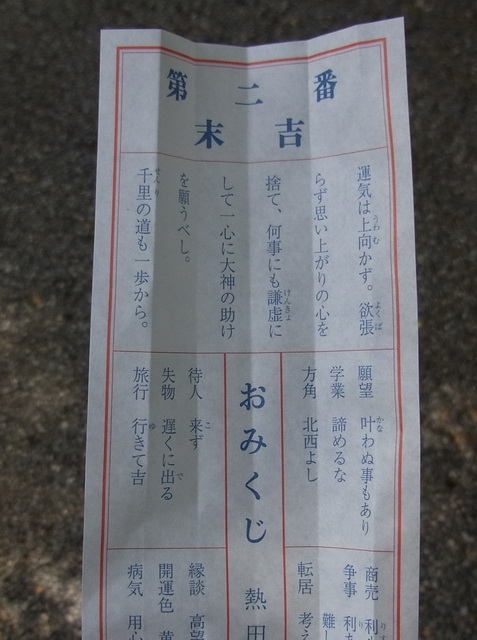 第二番
末吉
運気は上向かず。欲張
らず思い上がりの心を
捨て、何事にも謙虚に
して一心に大神の助け
を願うべし。
千里の道も一歩から。
願望 叶わぬ事もあり
学業 諦めるな
方角 北西よし
おみくじ 熱田
待人 来ず
失物 遅くに出る
旅行 行きて吉
商売 利
争事 利
転居 考え
縁談 高望
開運色 黄
病気 用心